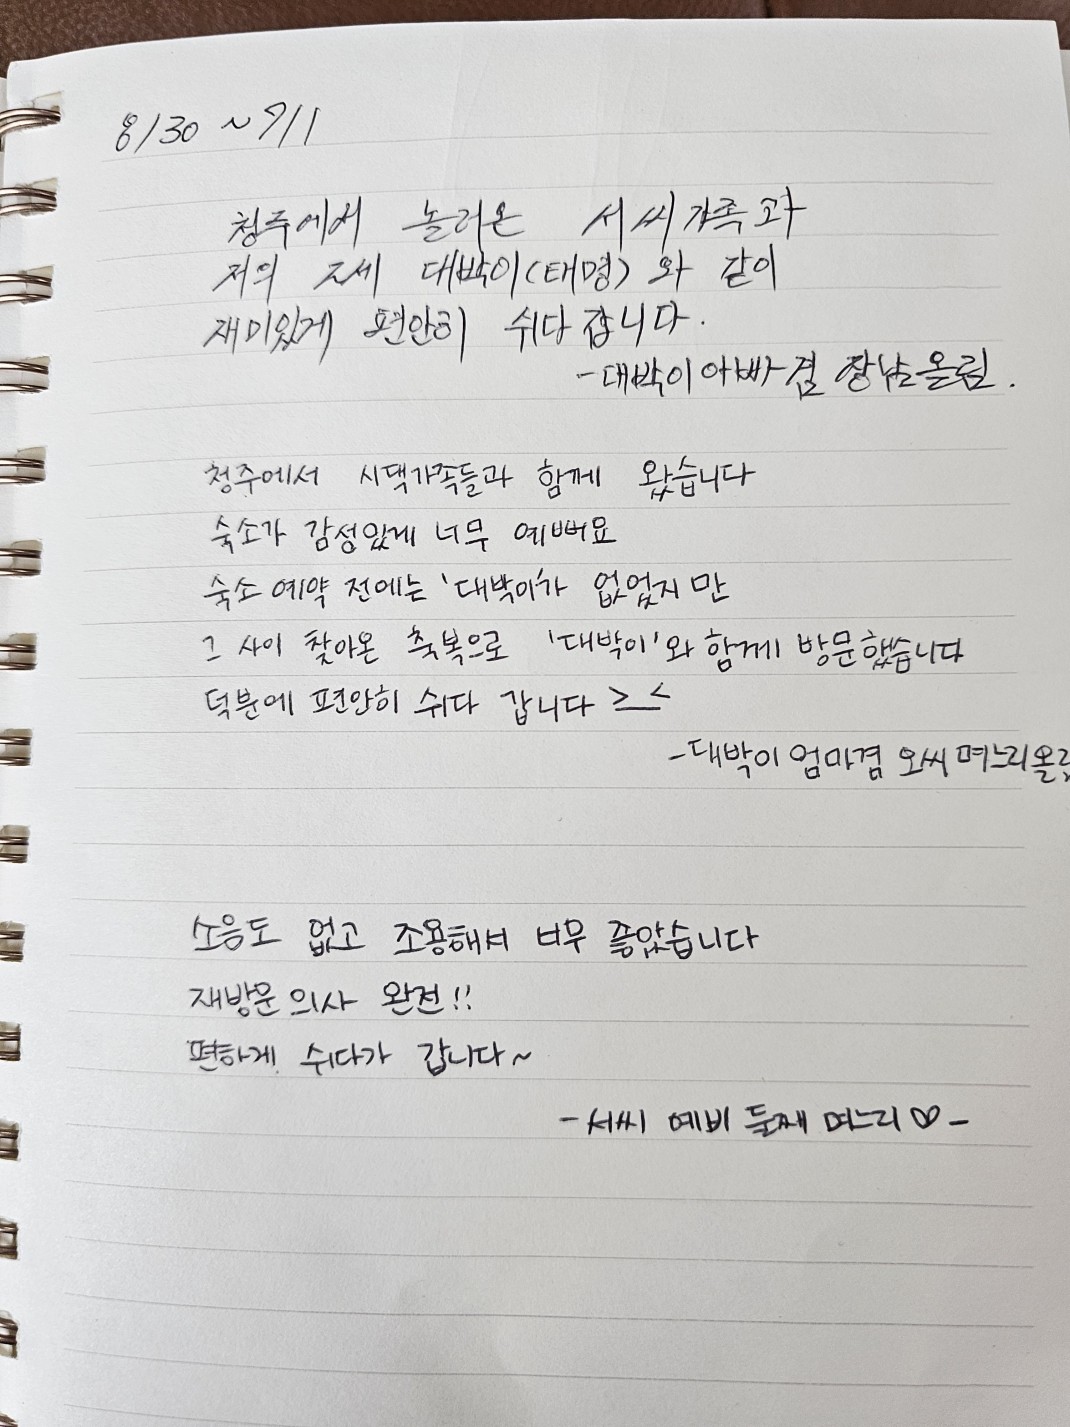 8/30 ~ 9/1
청주에서 놀러온 서씨가족과
저의 2세 대박이(태명)와 같이
재미있게 편안히 쉬다 갑니다.
-대박이아빠겸 장남올림.
청주에서 시댁가족들과 함께 왔습니다
숙소가 감성있게 너무 예뻐요
숙소 예약 전에는 '대박이'가 없었지만
그 사이 찾아온 축복으로 '대박이'와 함께 방문했습니다
덕분에 편안히 쉬다 갑니다 >__<
-대박이 엄마겸 오씨며느리올림
소음도 없고 조용해서 너무 좋았습니다
재방문 의사 완전!!
편하게 쉬다가 갑니다~
- 서씨 예비 둘째 며느리♡ -